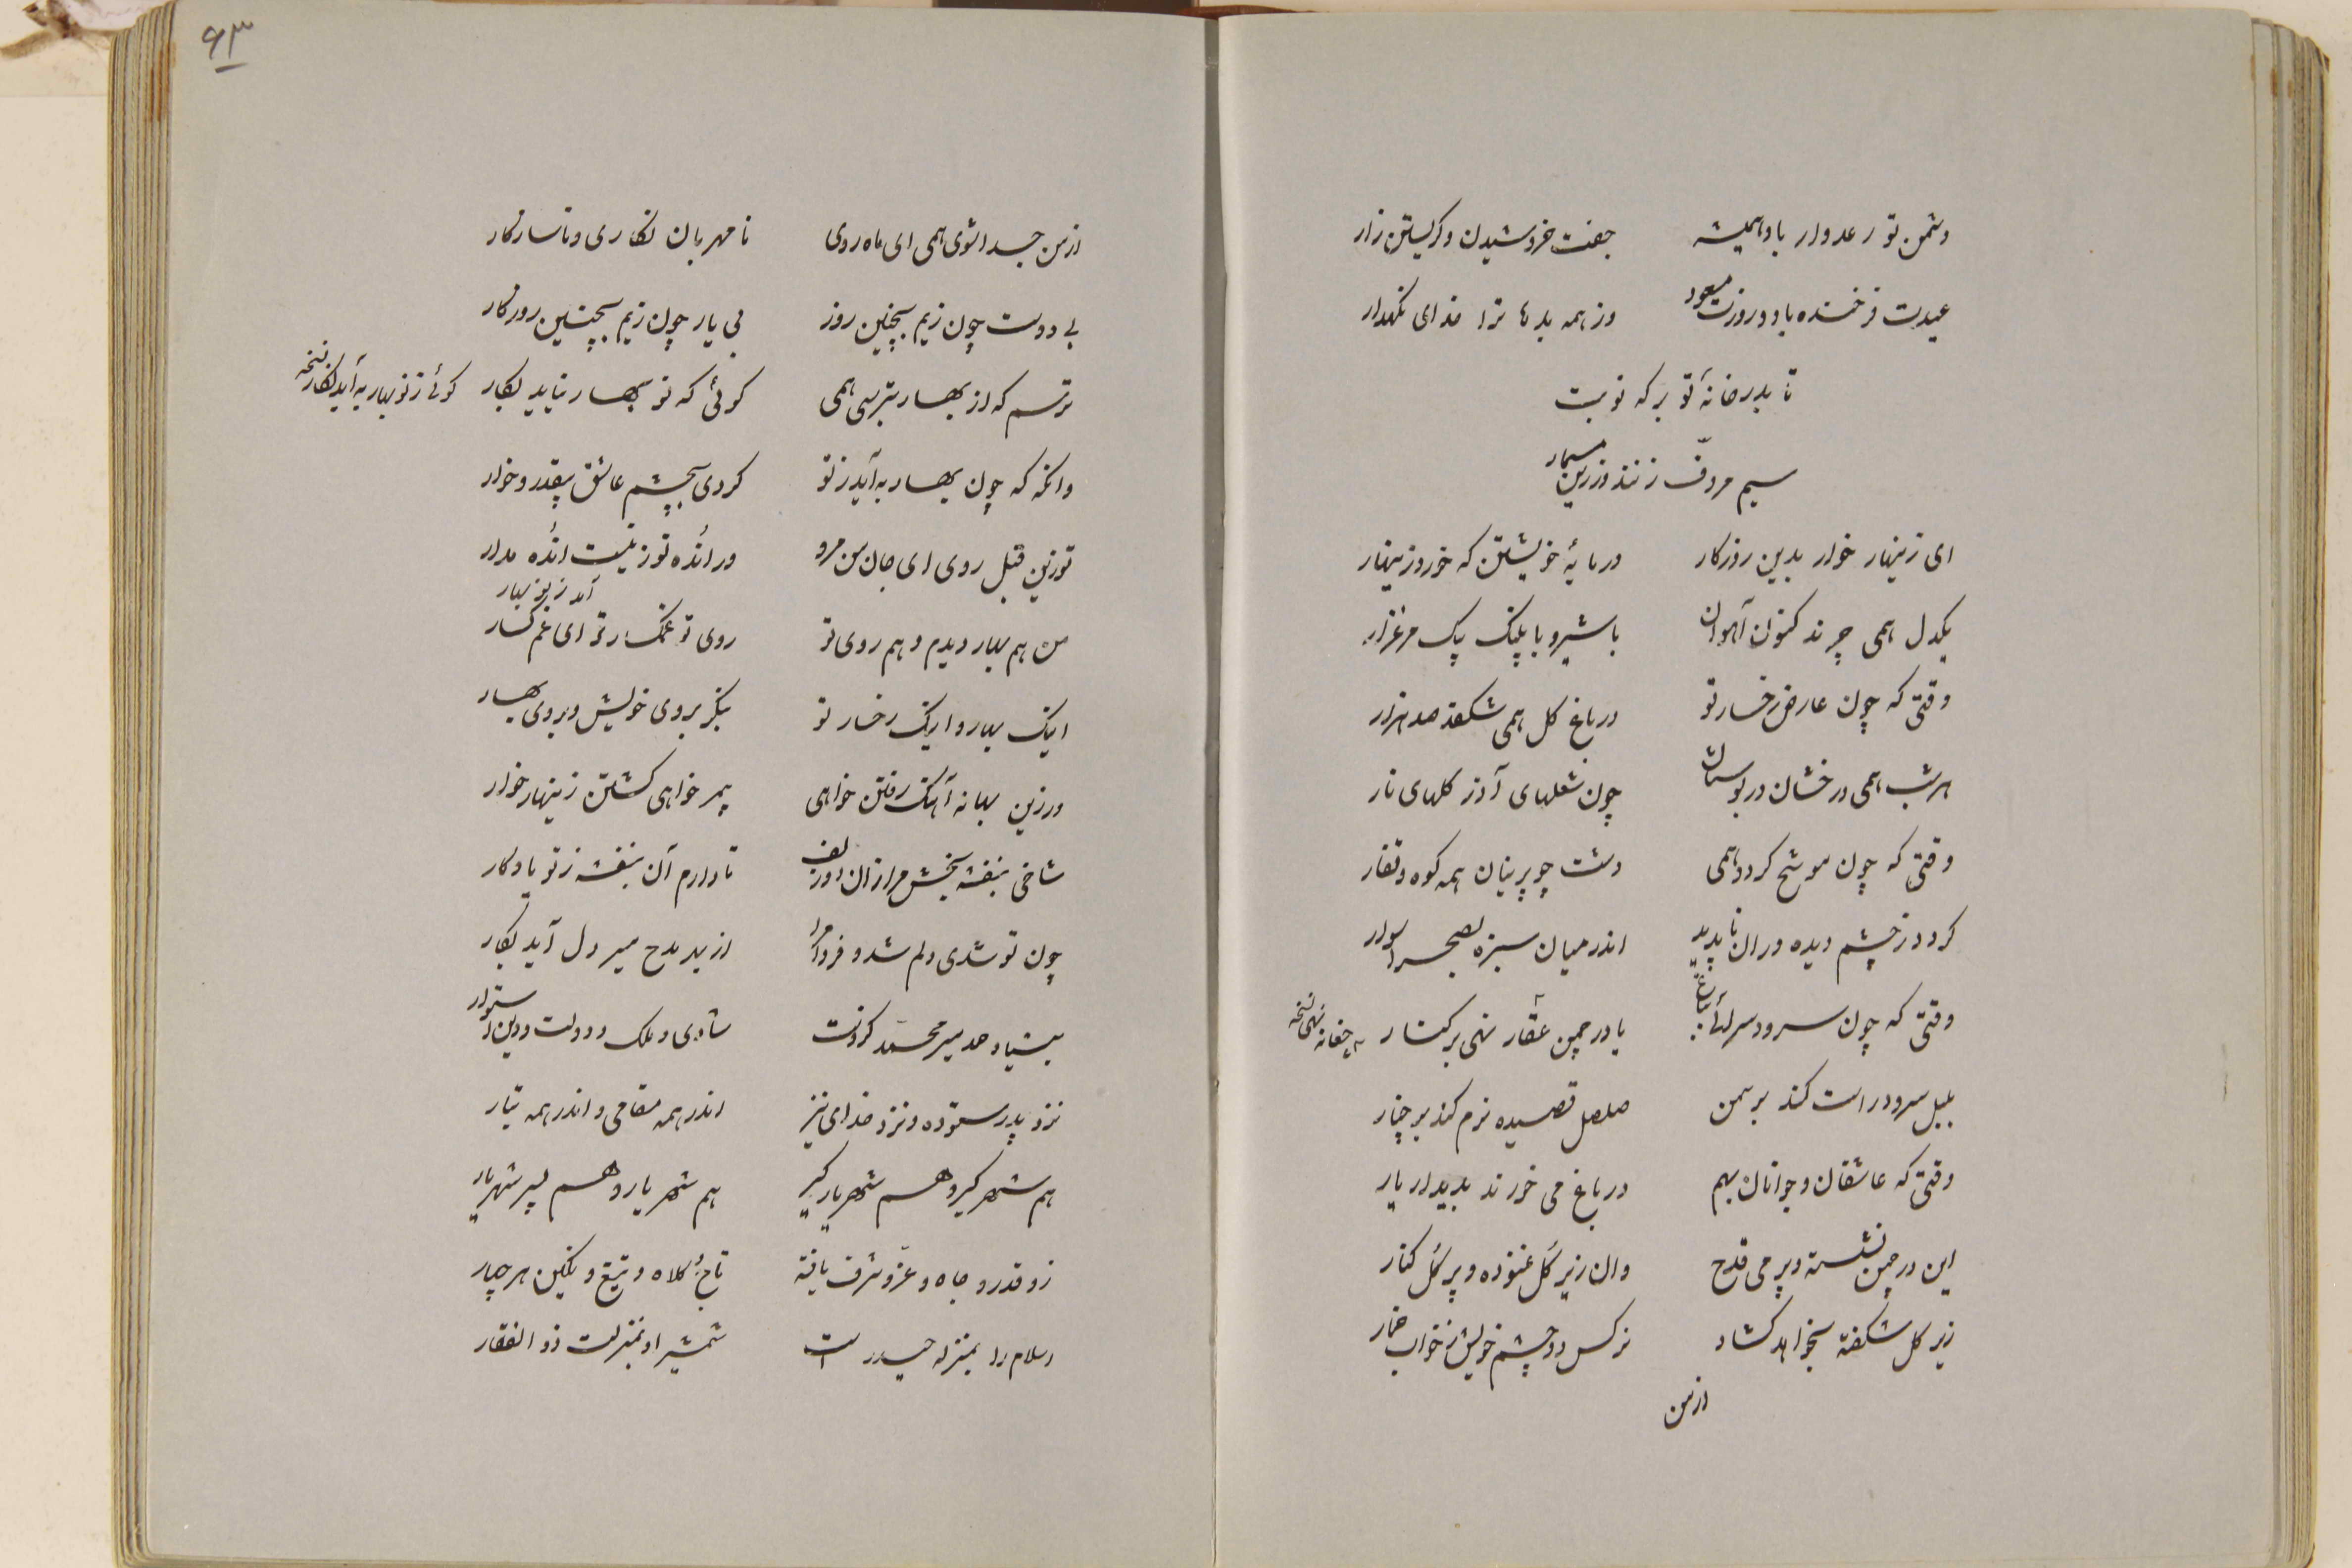 دشمن تو رعدوار باد همیشه
جفت خروشیدن و گریستن زار
عیدت فرخنده باد و روزت مسعود
وز همه بدها ترا خدای نگهدار
تا بدر خانهٔ تو بر که نوبت
سیم مردف زنند و زرین مسمار
ای زینهار خوار بدین روزکار
کردل همی چرند کنون آهوان
با شیر و با پلنگ بیک مرغزار
وقتی که چون عارض رخسار تو
در باغ کل همی شکفد صد هزار
هر شب همی درخشان در بوستان
چون شعلهای آذر کلهای نار
وقتی که چون موشح کردد همی
دشت چو پرنیان همه کوه و قفار
کردد ز چشم دیده وران ناپدید
اندر میان سبزه بصحرا سوار
وقتی که چون سرود سراید بباغ
یا در چمن عقار نهی بر کنار
چغانه نهی نسخه
بلبل سرود راست کند بر سمن
صلصل قصیده نرم کند بر چنار
وقتی که عاشقان و جوانان بهم
در باغ می خورند بدیدار یار
این در چمن نشسته و پر می قدح
وان زیر گل غنوده و پر گل کنار
زیر کل شکفته بخواهد کشاد
نرکس دو چشم خویش ز خواب خمار
از من
۶۳
از من جدا شوی همی ای ماه روی
نامهربان نکاری و ناسازکار
بی دوست چون زیم بچنین روز
بی یار چون زیم بچنین روزکار
ترسم که از بهار بترسی همی
کوئی که نوبهار نیاید بکار
کوئی ز نوبهار به آید نکار نسخه
وانکه که چون بهار به آید ز تو
کردی بچشم عاشق بیقدر و خوار
تو زین قبل روی ای جان من مرو
ور انده تو زینست انده مدار
من هم بهار دیدم و هم روی تو
روی تو غمکسارتر ای غم کسار
آمد ز نوبهار
اینک بهار و اینک رخسار تو
بنکر بروی خویش و بروی بهار
ور زین بهانه آهنک رفتن خواهی
بر خواهی کشتن زینهار خوار
شاخی بنفشه بخش مرا زان دو زلف
تا دارم آن بنفشه ز تو یادکار
چون تو شدی دلم شد و فردا مرا
از بهر مدح میر دل آید بکار
شادی و ملک و دولت و دین استوار
نزد پدر ستوده و نزد خدای نیز
اندر همه مقامی و اندر همه تبار
هم شهر کیر و هم شهریار کیر
هم شهریار و هم پسر شهریار
زو قدر و جاه و عز و شرف یافته
تاج و کلاه و تیغ و نکین هر چهار
اسلام را بمنزله حیدر است
شمشیر او بمنزلت ذوالفقار